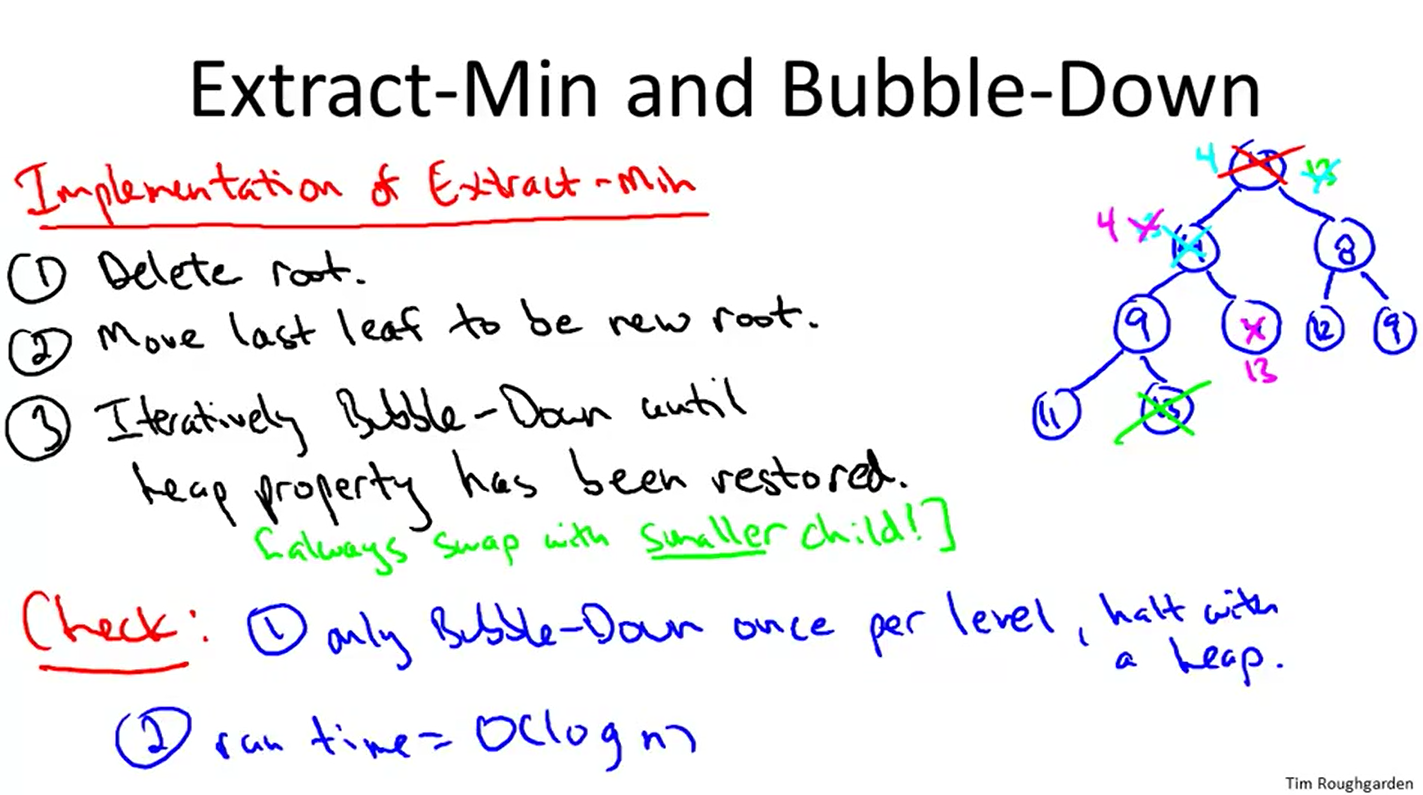 Extract-Min and Bubble-Down
Implementation of Extract-Min
① Delete root.
② Move last leaf to be new root.
③ Iteratively Bubble-Down until
heap property has been restored.
[always swap with smaller child!]
Check: ① only Bubble-Down once per level, halt with
a heap.
② run time = O(log n)
4 13
4 8
9 12 9
13
11
Tim Roughgarden